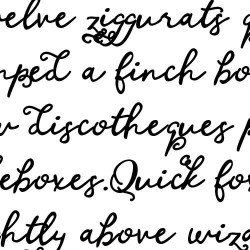 elve ziggurats q
mped a finch bo
w discotheques p
eboxes.Quick fox
ghtly above wiza